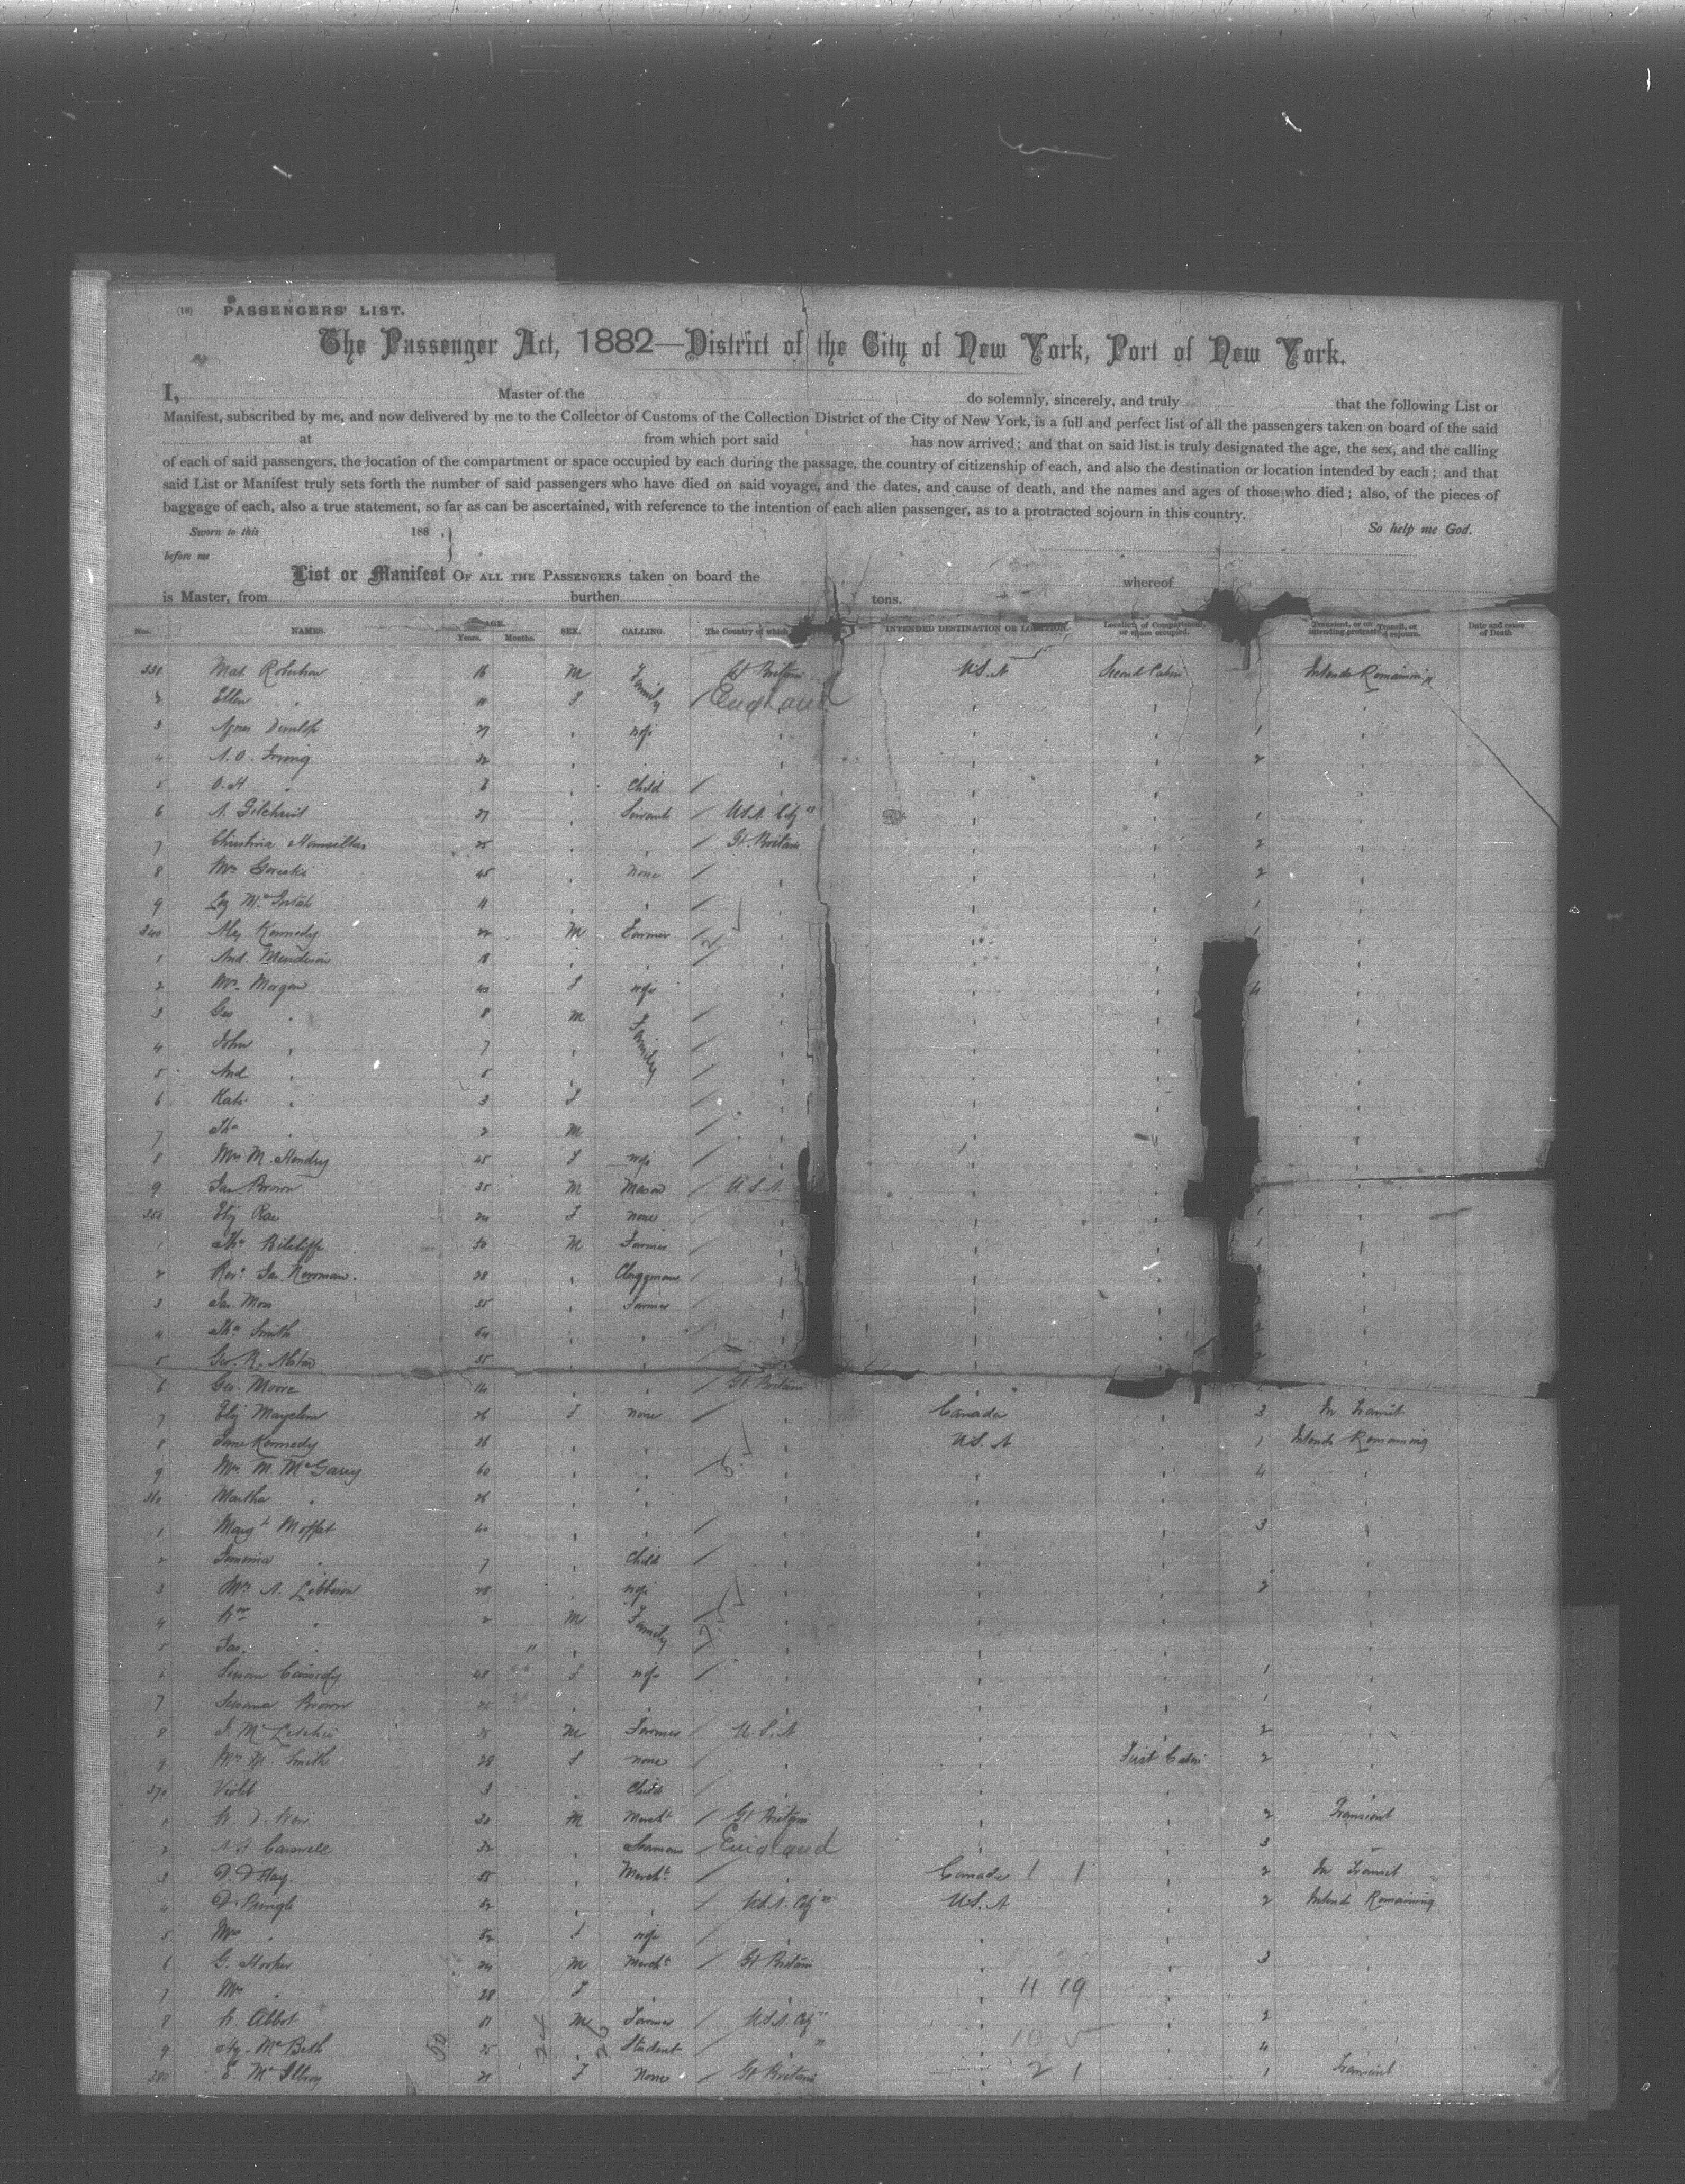 (18) PASSENGERS' LIST.
The Passenger Act, 1882—District of the City of New York, Port of New York.
I, Master of the do solemnly, sincerely, and truly that the following List or
Manifest, subscribed by me, and now delivered by me to the Collector of Customs of the Collection District of the City of New York, is a full and perfect list of all the passengers taken on board of the said
at from which port said has now arrived; and that on said list is truly designated the age, the sex, and the calling
of each of said passengers, the location of the compartment or space occupied by each during the passage, the country of citizenship of each, and also the destination or location intended by each; and that
said List or Manifest truly sets forth the number of said passengers who have died on said voyage, and the dates, and cause of death, and the names and ages of those who died; also, of the pieces of
baggage of each, also a true statement, so far as can be ascertained, with reference to the intention of each alien passenger, as to a protracted sojourn in this country.
So help me God.
Sworn to this 188 .
before me
List or Manifest OF ALL THE PASSENGERS taken on board the whereof
is Master, from burthen tons.
Nos. NAMES. AGE. Years. Months. SEX. CALLING. The Country of which INTENDED DESTINATION OR LOCATION. Location of Compartment or space occupied. Transient, or in Transit, or intending protracted sojourn. Date and cause of Death
331 Robertson 16 M Family Gt Britain U.S.A Second Cabin Intends Remaining
2 Ellen " 11 F England
3 Agnes Dunlop 27 " wife " 1
4 A. O. Irving 32 " 2
5 O. H " " Child
6 A. Gilchrist 37 " Servant U.S.A. Citzn 1
7 Christina 25 " " Gt Britain 2
8 Mrs 45 " none 2
9 11 " " 1
340 Alex Kennedy 22 M Farmer 1
1 And. 18 " "
2 Mrs Morgan 40 F wife 4
3 Geo " 8 M Family
4 John " 7 "
5 And " 5 "
6 Kate " 3 F
7 Thos " 2 M
8 Mrs M. Hendry 45 F wife
9 Jas Brown 35 M Mason U.S.A
350 Eliz Rae 24 F none 1
1 Thos 50 M Farmer 1
2 Revd Jas. 28 " Clergyman
3 Jas. 35 " Farmer
4 Thos Smith 64 " " 2
5 Geo. R. 35 " " 2
6 Geo. Moore 14 " " Gt Britain
7 Eliz 26 F none " Canada " 3 In Transit
8 Jane Kennedy 26 " " " U.S.A " 1 Intends Remaining
9 Mrs M. McGarey 60 " " 4
360 Martha " 26 " "
1 Margt Moffat 40 " " 3
2 Jemima " 7 " Child
3 Mrs A. 28 " wife 2
4 Wm " 2 M Family
5 Jas. " 11 "
6 Susan Cassidy 48 F wife 1
7 Brown 25 " " 1
8 J. 25 M Farmer U.S.A 2
9 Mrs M. Smith 28 F none " " First Cabin 2
370 Violet 3 " Child
1 W. Weir 30 M Mercht Gt Britain 2 Transient
2 Carswell 32 " England 3 "
3 D. D Hay. 55 " Mercht Canada 1 1 2 In Transit
4 D Pringle 62 " " U.S.A. Citzn U.S.A 2 Intends Remaining
5 Mrs " 52 F wife
6 G. Hooper 24 M Mercht Gt Britain 3
7 Mrs " 28 F " " 11 19
8 W. Abbot M Farmer U.S.A. Citzn 2
9 Hy. McBeth 25 " Student " 10 4
380 E. McIlroy 21 F None Gt Britain 2 1 1 Transient